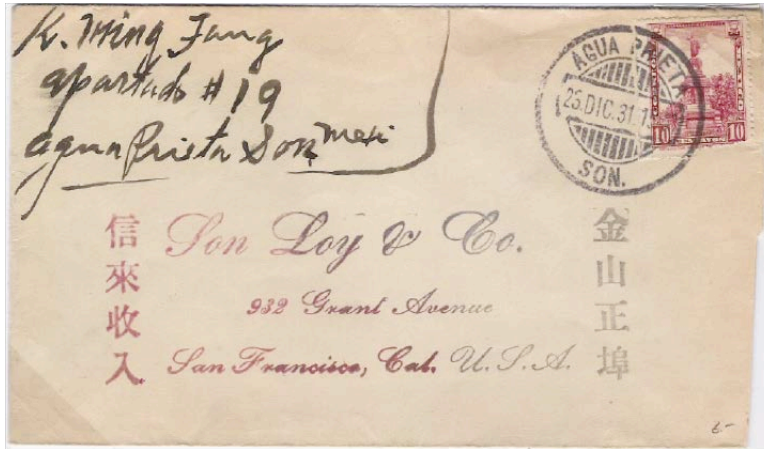 K. Wing Fang
apartado #19
agua Prieta Son Mexi
AGUA PRIETA
23.DIC.31.1
SON.
10 10
信來收入
Son Loy & Co.
932 Grant Avenue
San Francisco, Cal. U.S.A.
金山正埠
6-